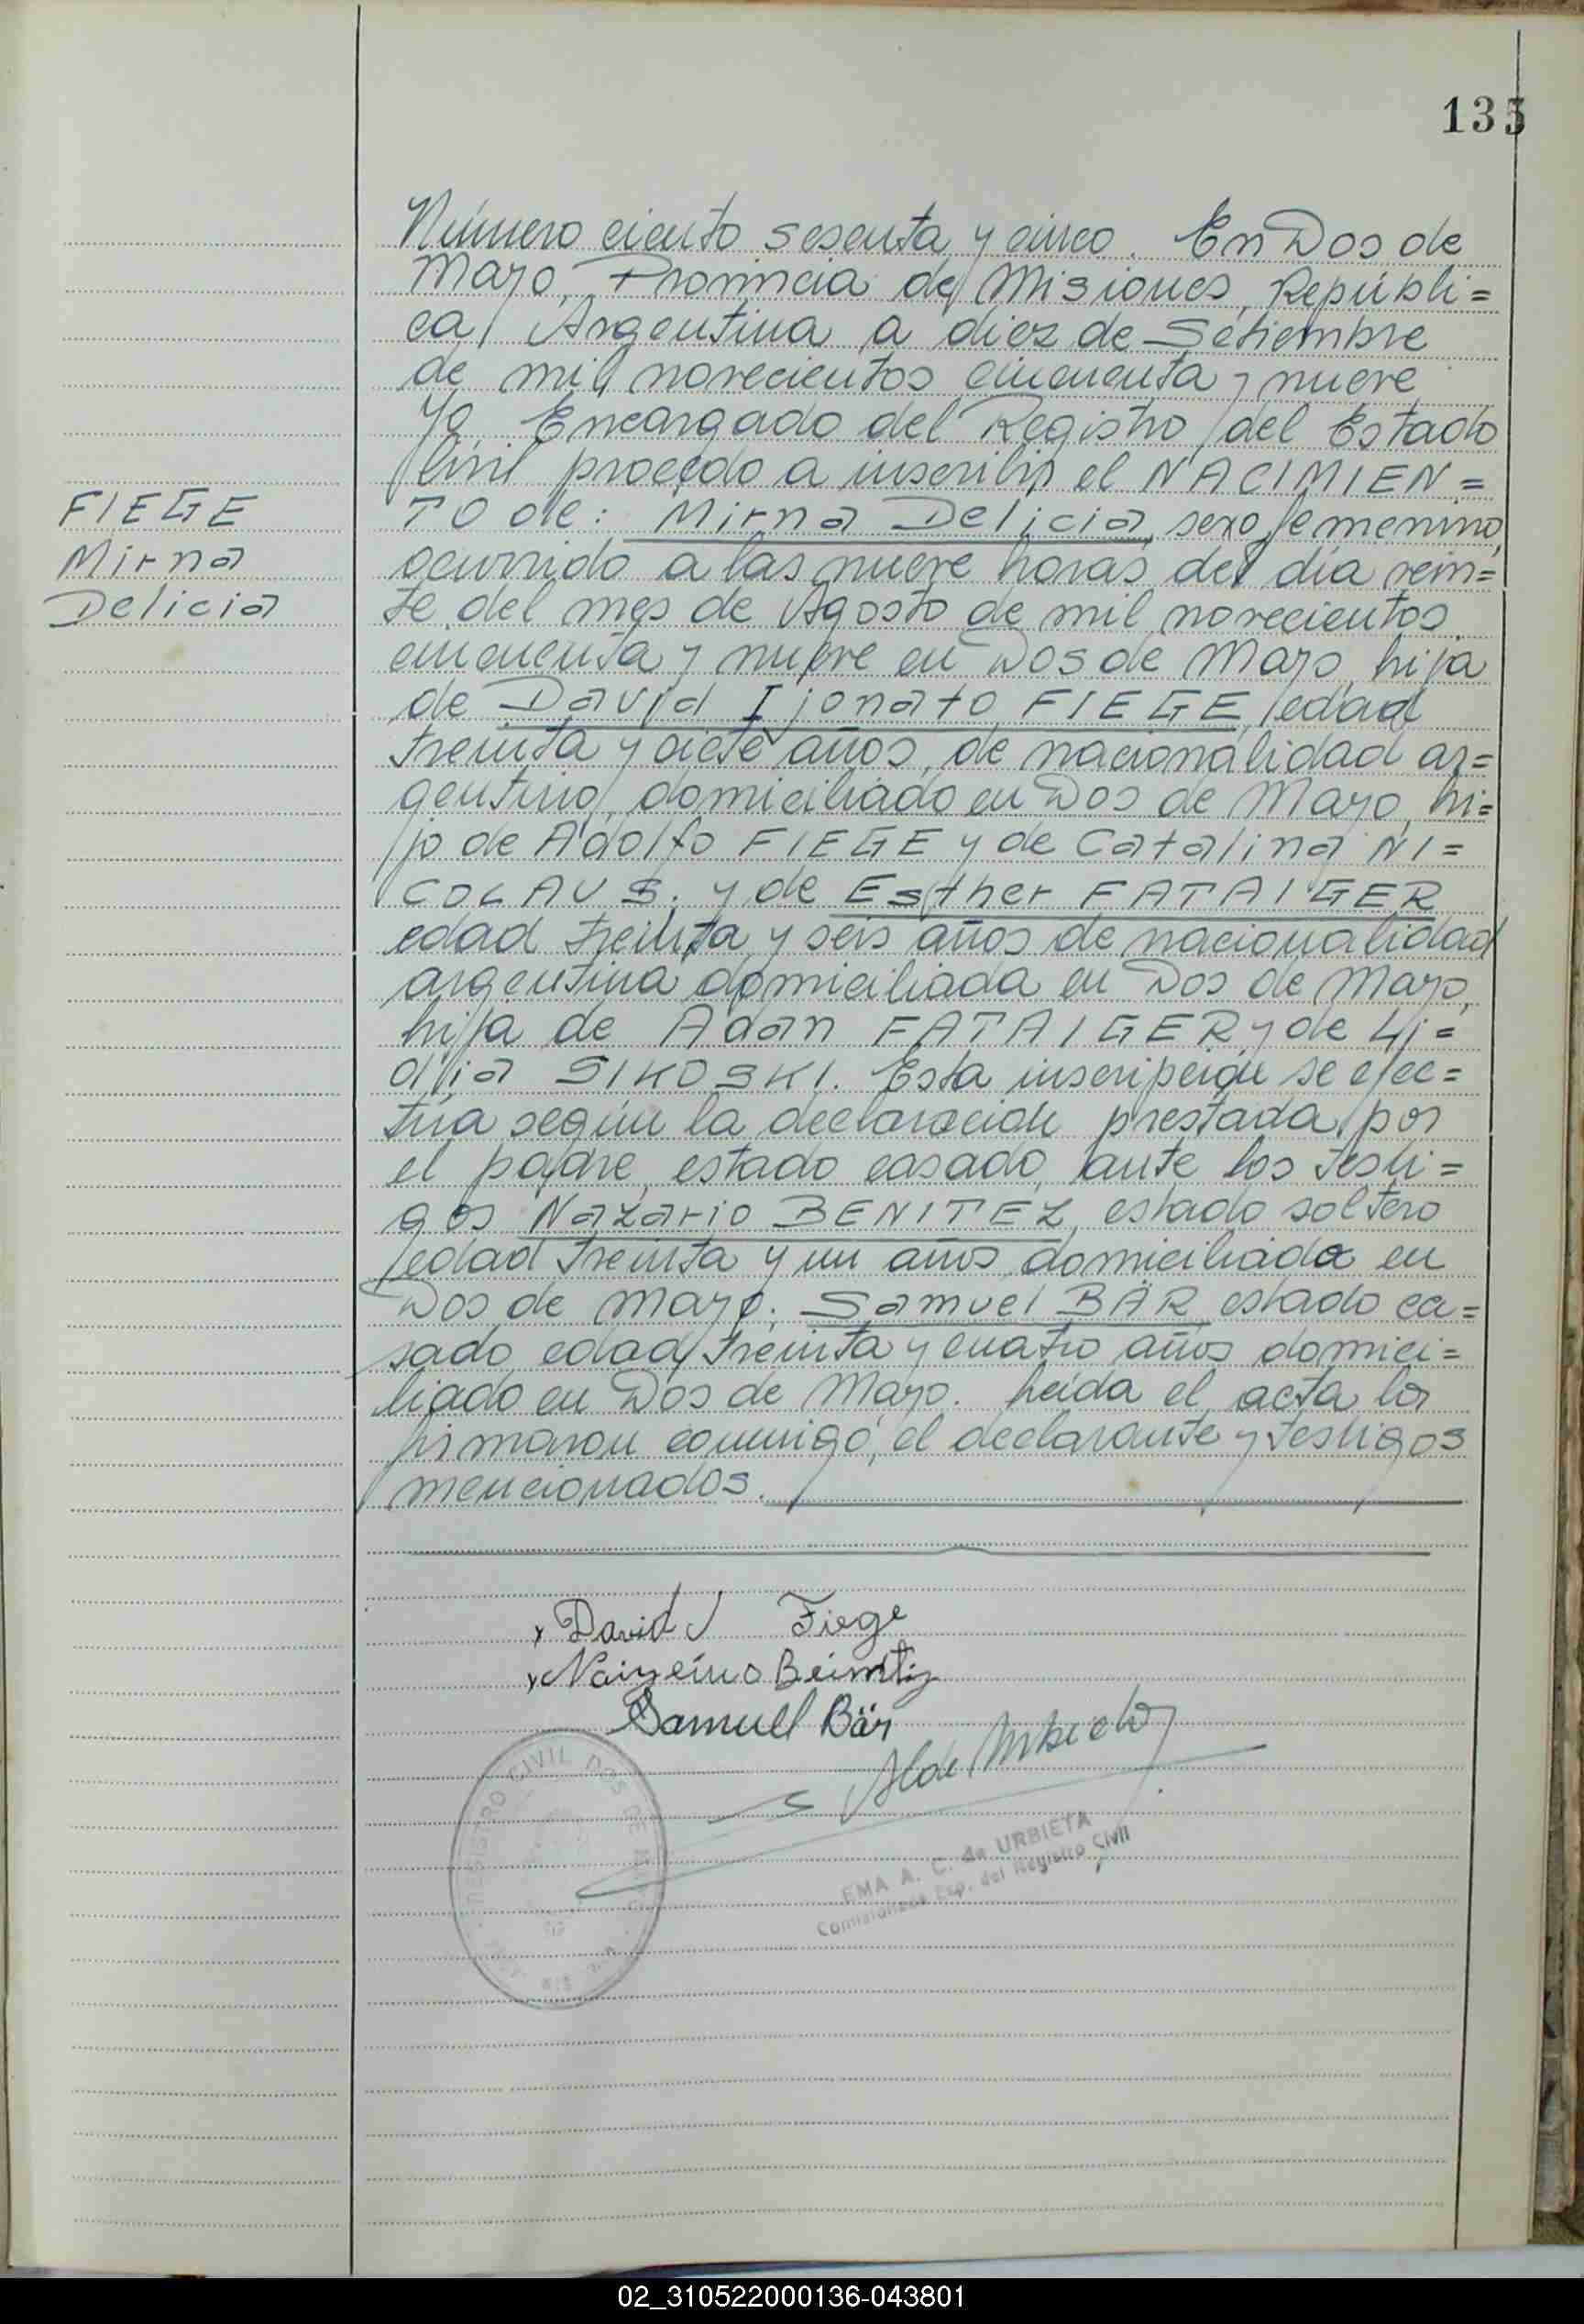 135
Número ciento sesenta y cinco. En Dos de
Mayo, Provincia de Misiones, Repúbli=
ca Argentina a diez de Setiembre
de mil novecientos cincuenta y nueve
Yo Encargado del Registro del Estado
Civil procedo a inscribir el NACIMIEN=
FIEGE
Mirna
Delicia
TO de: Mirna Delicia, sexo femenino,
ocurrido a las nueve horas del día vein=
te del mes de Agosto de mil novecientos
cincuenta y nueve en Dos de Mayo, hija
de David Ijonato FIEGE, edad
treinta y siete años, de nacionalidad ar=
gentino, domiciliado en Dos de Mayo, hi=
jo de Adolfo FIEGE y de Catalina NI=
COLAUS. y de Esther FATAIGER
edad treinta y seis años de nacionalidad
argentina domiciliada en Dos de Mayo,
hija de Adan FATAIGER y de Li=
dia SIKOSKI. Esta inscripción se efec=
túa según la declaración prestada por
el padre, estado casado, ante los testi=
gos Nazario BENITEZ, estado soltero
edad treinta y un años domiciliado en
Dos de Mayo; Samuel BÄR estado ca=
sado edad treinta y cuatro años domici=
liado en Dos de Mayo. Leída el acta la
firmaron conmigo, el declarante y testigos
mencionados.
x David J Fiege
x Beinitiz
Samuel Bär
REGISTRO CIVIL DOS DE MAYO
EMA A. C. de URBIETA
Comisionada Esp. del Registro Civil
02_310522000136-043801